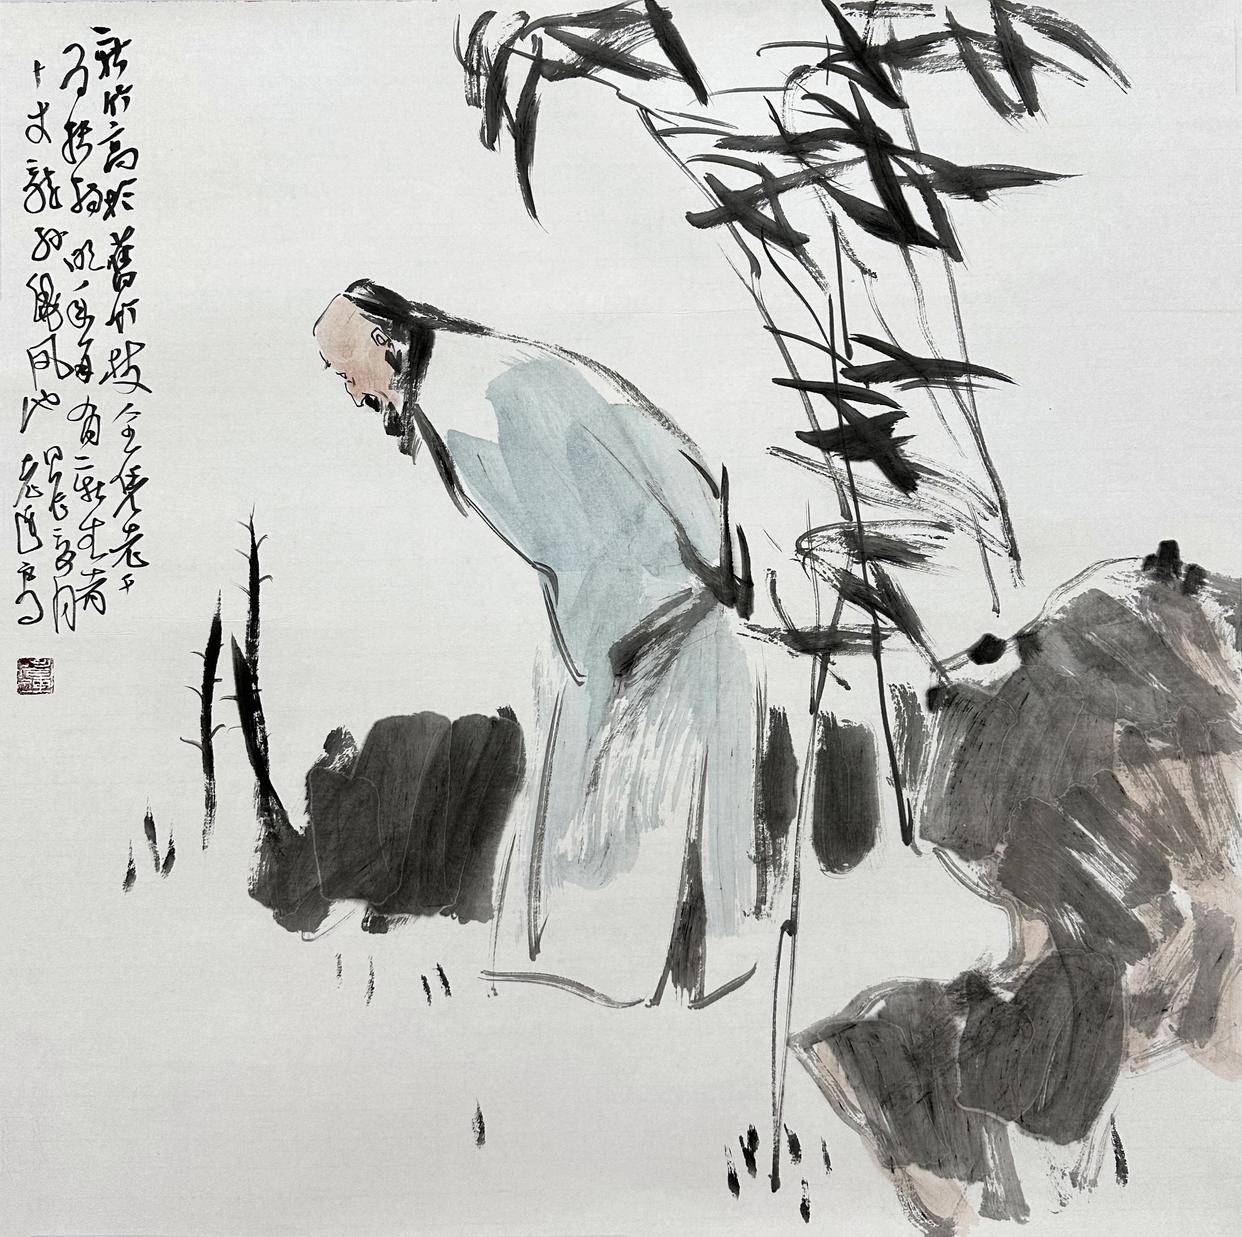 新竹高於舊竹枝全凭老干
为扶持明年再有新生者
十丈龍孙繞凤池